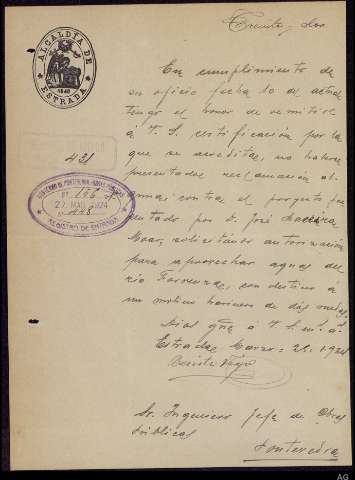 Treinta y dos
ALCALDÍA DE ESTRADA
1840
En cumplimiento de
su oficio fecha 10 de actual
tengo el honor de remitirle
á V.S. certificación por la
que se acredita, no haberse
presentado reclamación al-
431
guna contra el proyecto pre-
sentado por D. José
GOBIERNO DE PONTEVEDRA OBRAS PÚBLICAS
Nº 176
27 MAR 1924
Nº 1148
REGISTRO DE ENTRADA
solicitando autorización
para aprovechar aguas del
río con destino á
un molino harinero de dos ruedas.
Dios gue á V.S. m. a.
Estrada Marzo 26. 1924
Benito Vigo
Sr. Ingeniero Jefe de Obras
Públicas
Pontevedra
AG